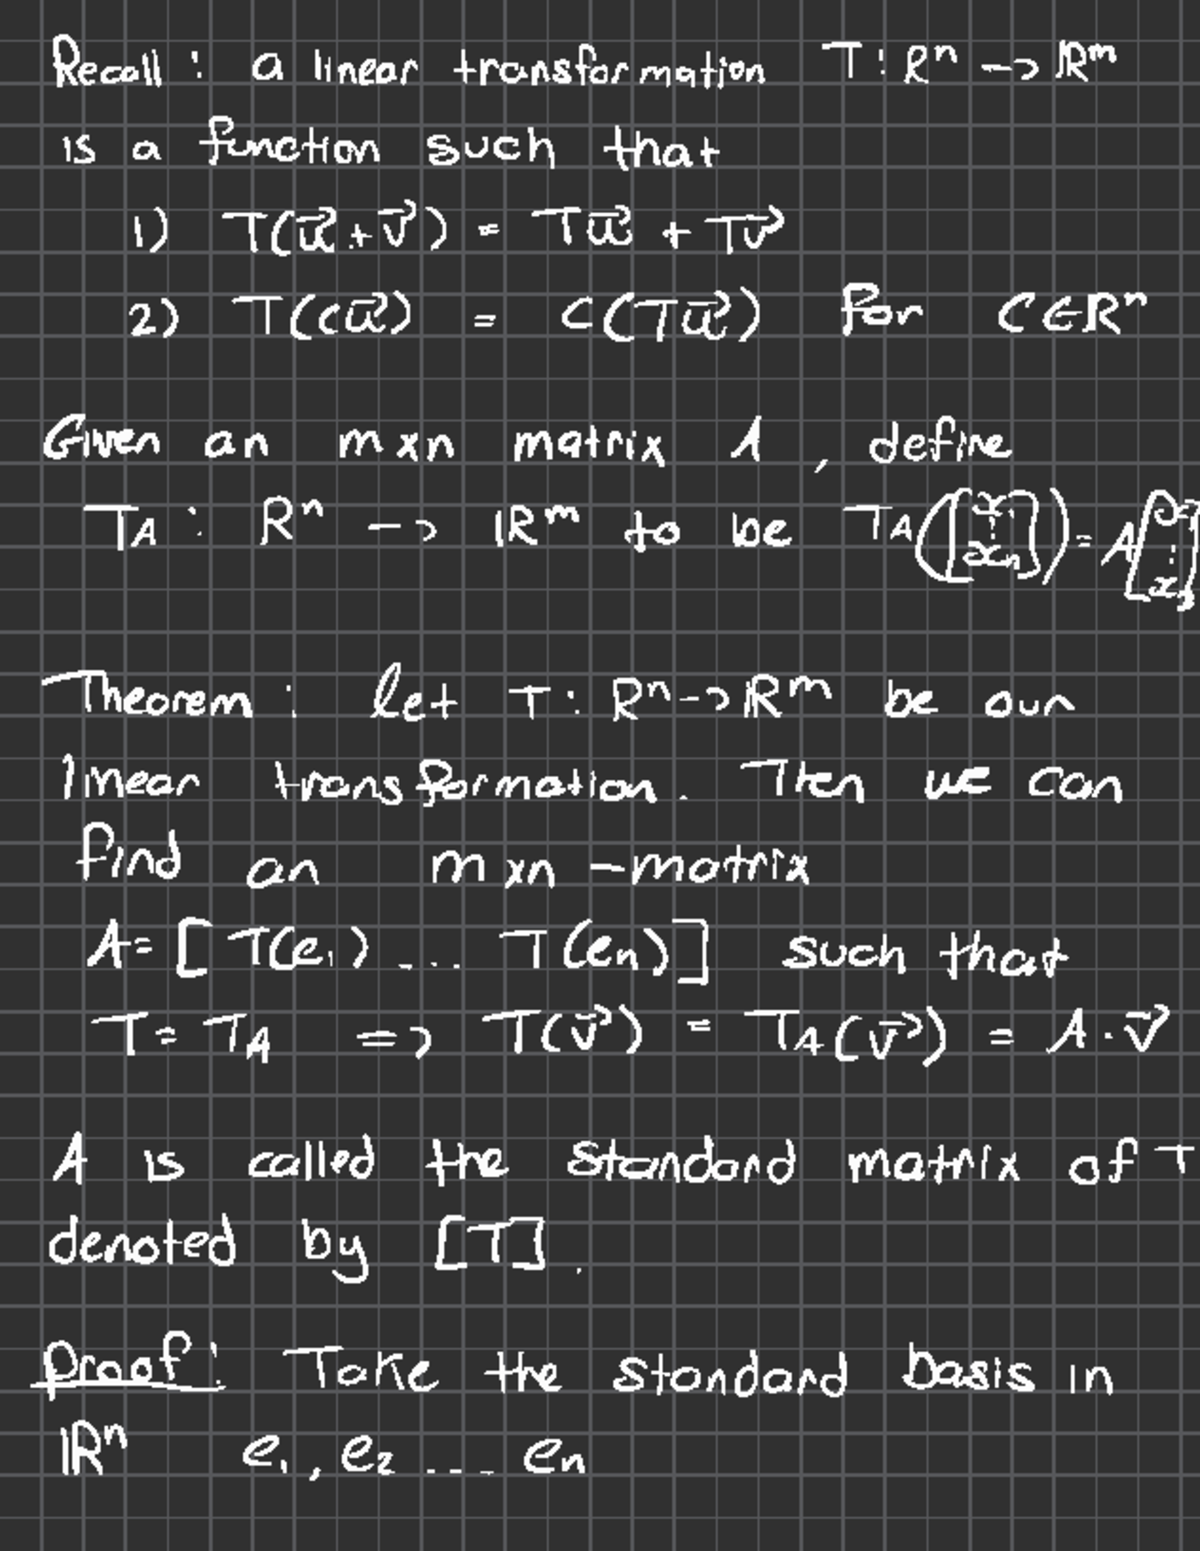 Recall : a linear transformation T : Rⁿ -> ℝᵐ
is a function such that
1) T(u⃗ + v⃗) = Tu⃗ + Tv⃗
2) T(cu⃗) = c(Tu⃗) for C∈ℝⁿ
Given an mxn matrix A , define
T_A : Rⁿ -> ℝᵐ to be T_A([x₁ ⋮ xₙ]) = A[x₁ ⋮ xₙ]
Theorem : let T : Rⁿ -> ℝᵐ be our
linear transformation. Then we can
find an mxn -matrix
A= [ T(e₁) ... T(eₙ)] such that
T = T_A => T(v⃗) = T_A(v⃗) = A · v⃗
A is called the standard matrix of T
denoted by [T] .
Proof : Take the standard basis in
ℝⁿ e₁ , e₂ .... eₙ